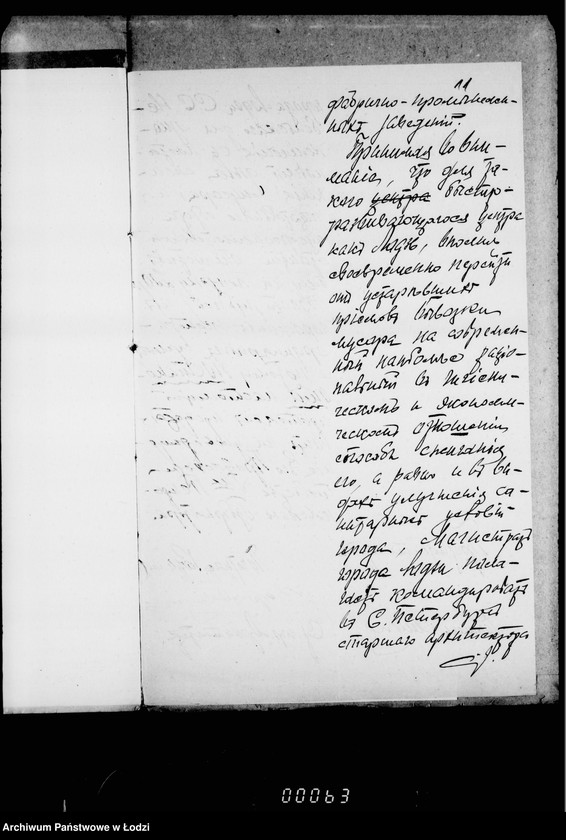 11
фабрично-промышлен-
ныхъ заведеній.
Принимая во вни-
манiе, что для та-
кого центра быстро-
развивающагося центра
какъ Лодзь, вполнѣ
своевременно перейти
отъ устарѣвшихъ
прiемовъ вывозки
мусора на современ-
ный наиболѣе рацiо-
нальный въ гигiени-
ческомъ и экономи-
ческомъ отношенiи
способъ сжиганiя
его, а равно и въ ви-
дахъ улучшенiя са-
нитарныхъ условiй
города, Магистратъ
города Лодзи пола-
гаетъ командировать
въ С. Петербургъ
старшаго архитектора
00063
Archiwum Państwowe w Łodzi